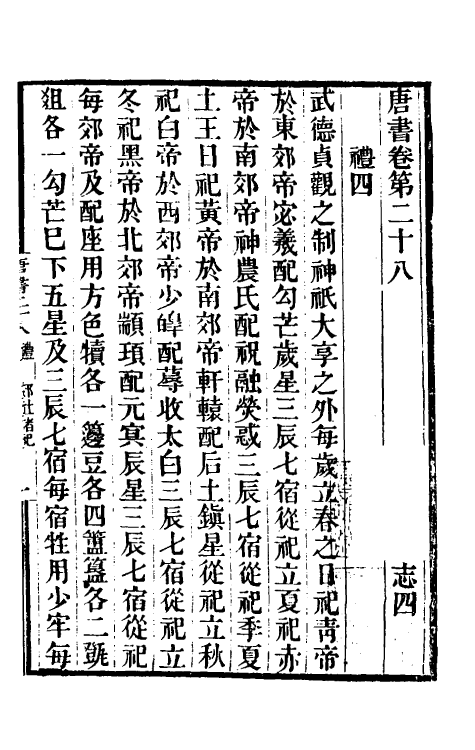 唐書卷第二十八　志四
禮四
武德貞觀之制神祇大享之外每歲立春之日祀靑帝
於東郊帝宓羲配勾芒歲星三辰七宿從祀立夏祀赤
帝於南郊帝神農氏配祝融熒惑三辰七宿從祀季夏
土王日祀黃帝於南郊帝軒轅配后土鎭星從祀立秋
祀白帝於西郊帝少皥配蓐收太白三辰七宿從祀立
冬祀黑帝於北郊帝顓頊配元冥辰星三辰七宿從祀
每郊帝及配座用方色犢各一籩豆各四簠簋各二㽅
俎各一勾芒巳下五星及三辰七宿每宿牲用少牢每
唐書二八　禮　郊社諸祀　一